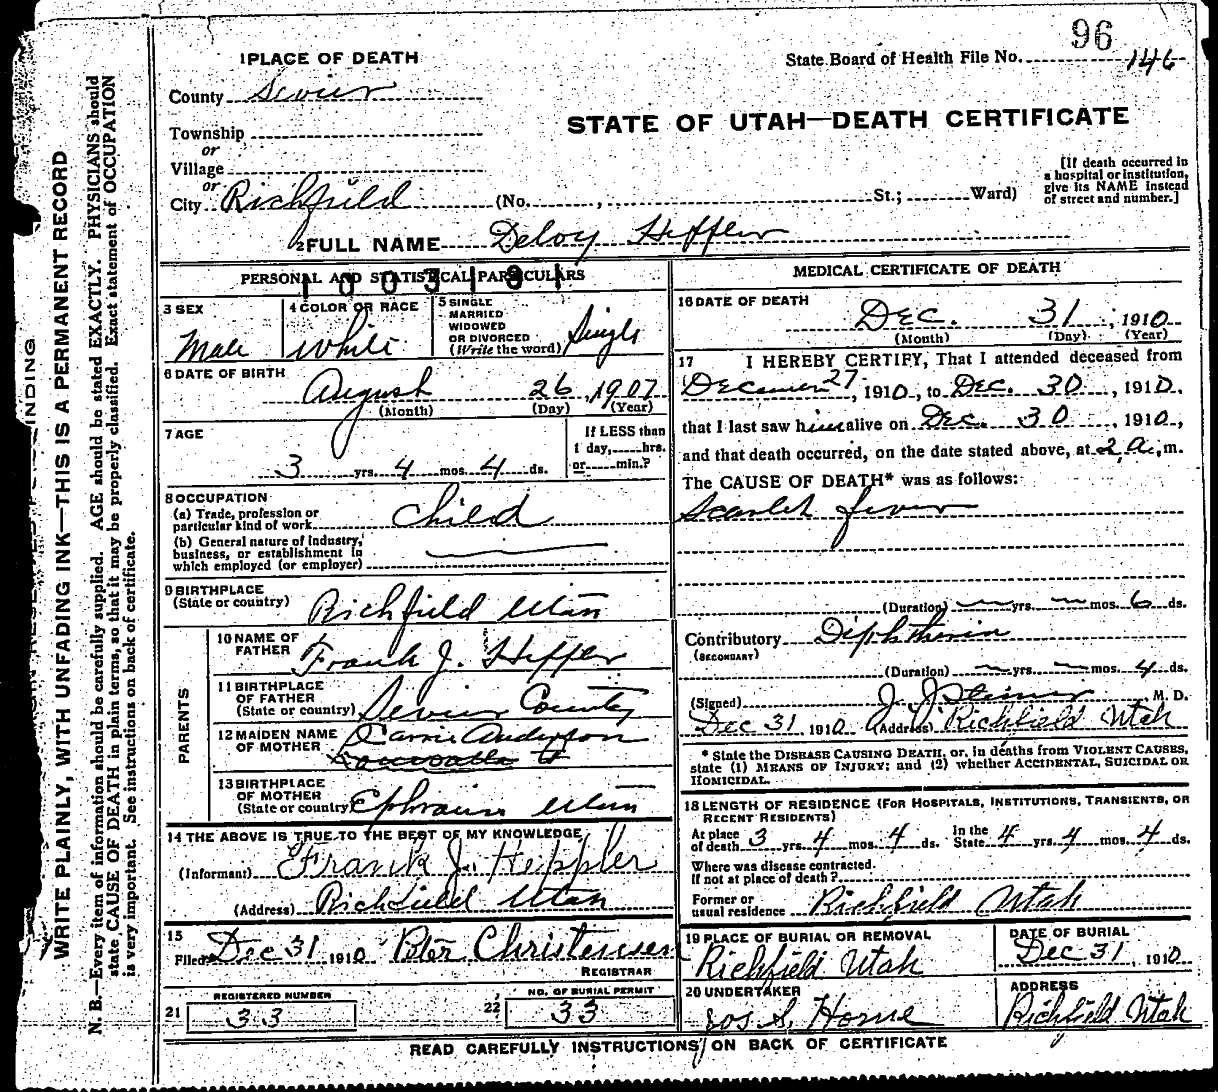 96
1 PLACE OF DEATH
State Board of Health File No. 146
County Sevier
STATE OF UTAH—DEATH CERTIFICATE
Township
or
Village
or
City Richfield (No. , St.; Ward)
[If death occurred in
a hospital or institution,
give its NAME instead
of street and number.]
2 FULL NAME Deloy Heppler
PERSONAL AND STATISTICAL PARTICULARS
1003191
3 SEX
Male
4 COLOR OR RACE
White
5 SINGLE
MARRIED
WIDOWED
OR DIVORCED
(Write the word)
Single
6 DATE OF BIRTH
August 26, 1907
(Month) (Day) (Year)
7 AGE
3 yrs. 4 mos. 4 ds.
If LESS than
1 day, hrs.
or min.?
8 OCCUPATION
(a) Trade, profession or
particular kind of work Child
(b) General nature of industry,
business, or establishment in
which employed (or employer)
9 BIRTHPLACE
(State or country) Richfield Utah
PARENTS
10 NAME OF
FATHER Frank J. Heppler
11 BIRTHPLACE
OF FATHER
(State or country) Sevier County
12 MAIDEN NAME
OF MOTHER Carrie Anderson
13 BIRTHPLACE
OF MOTHER
(State or country Ephraim Utah
14 THE ABOVE IS TRUE TO THE BEST OF MY KNOWLEDGE
(Informant) Frank J. Heppler
(Address) Richfield Utah
15
Filed Dec 31 1910 Peter Christensen
REGISTRAR
REGISTERED NUMBER
21 33
NO. OF BURIAL PERMIT
22 33
MEDICAL CERTIFICATE OF DEATH
16 DATE OF DEATH
Dec. 31, 1910
(Month) (Day) (Year)
17 I HEREBY CERTIFY, That I attended deceased from
December 27, 1910, to Dec. 30, 1910,
that I last saw him alive on Dec. 30, 1910,
and that death occurred, on the date stated above, at 2 a. m.
The CAUSE OF DEATH* was as follows:
Scarlet fever
(Duration) yrs. mos. 6 ds.
Contributory Diphtheria
(SECONDARY)
(Duration) yrs. mos. 4 ds.
(Signed) J. J. Steiner, M. D.
Dec 31 1910 (Address) Richfield Utah
* State the DISEASE CAUSING DEATH, or, in deaths from VIOLENT CAUSES,
state (1) MEANS OF INJURY; and (2) whether ACCIDENTAL, SUICIDAL OR
HOMICIDAL.
18 LENGTH OF RESIDENCE (FOR HOSPITALS, INSTITUTIONS, TRANSIENTS, OR
RECENT RESIDENTS)
At place
of death 3 yrs. 4 mos. 4 ds.
In the
State 4 yrs. 4 mos. 4 ds.
Where was disease contracted.
If not at place of death?
Former or
usual residence Richfield Utah
19 PLACE OF BURIAL OR REMOVAL
Richfield Utah
DATE OF BURIAL
Dec 31, 1910
20 UNDERTAKER
Jos. S. Horne
ADDRESS
Richfield Utah
READ CAREFULLY INSTRUCTIONS ON BACK OF CERTIFICATE
WRITE PLAINLY, WITH UNFADING INK—THIS IS A PERMANENT RECORD
N. B.—Every item of information should be carefully supplied. AGE should be stated EXACTLY. PHYSICIANS should
state CAUSE OF DEATH in plain terms, so that it may be properly classified. Exact statement of OCCUPATION
is very important. See instructions on back of certificate.